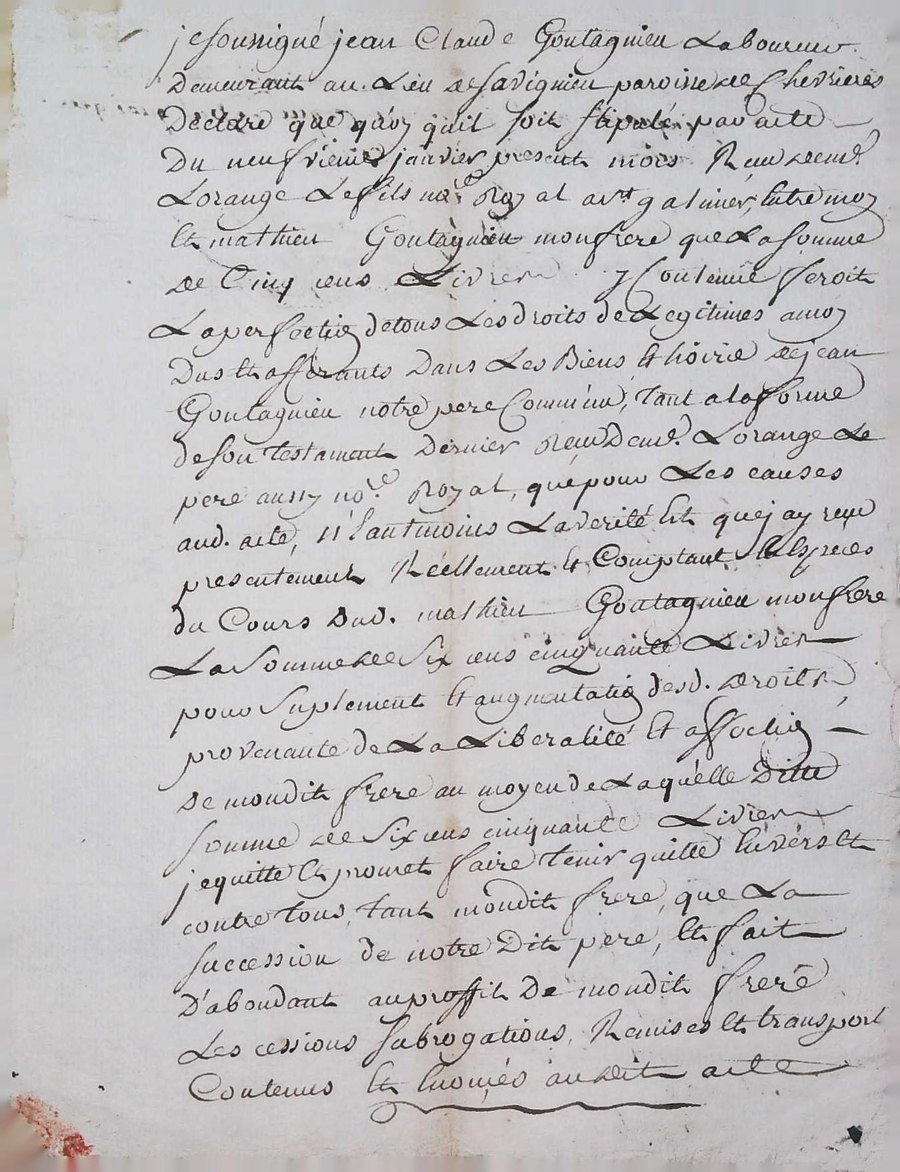 je soussigné jean Claude Goutagnieu Laboureur
Demeurant au Lieu de savignieu paroisse de Chevrieres
Declare que quoy quil soit stipulé par acte
Du neufvieme janvier present mois Recu de me.
Lorange Le fils nore. Royal a st galmier, entre moy
Et mathieu Goutagnieu mon frere que La somme
de Cinq cens Livres y Contenüe seroit
La perfection de tous Les droits de Legitimes a moy
Dus Et afferants Dans Les Biens Et hoirie de jean
Goutagnieu notre pere Commun, tant a la forme
de son testament Dernier Recu De me. Lorange Le
pere aussy nore. Royal, que pour Les causes
aud. acte, N'eantmoins La verité Est que j'ay reçu
presentement Réellement Et Comptant En Especes
du Cours dud. mathieu Goutagnieu mon frere
La somme de Six cens cinquante Livres
pour suplement Et augmentation desd. droits
provenante de La Liberalité Et affection
de mondit frere au moyen de Laquelle Ditte
somme de Six cens cinquante Livres
je quitte Et promet faire tenir quitte Envers Et
contre tous, tant mondit frere, que La
succession de notre Dit pere, Et fait
D'abondant au proffit De mondit frere
Les cessions subrogations, Remises Et transport
Contenus Et Enoncés audit acte